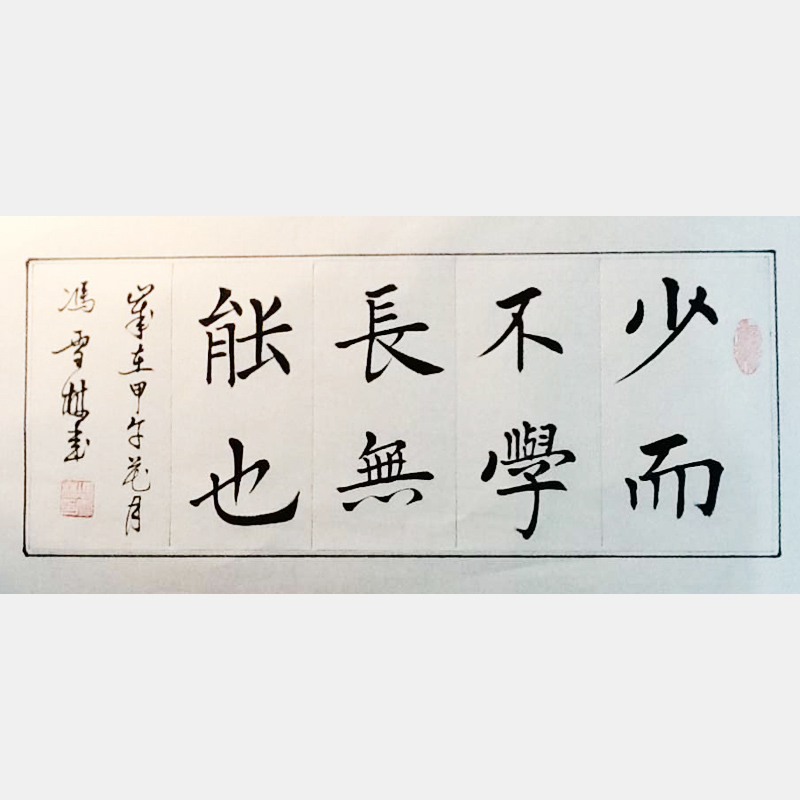 少而
不學
長無
能也
歲在甲午花月
馮雪林書